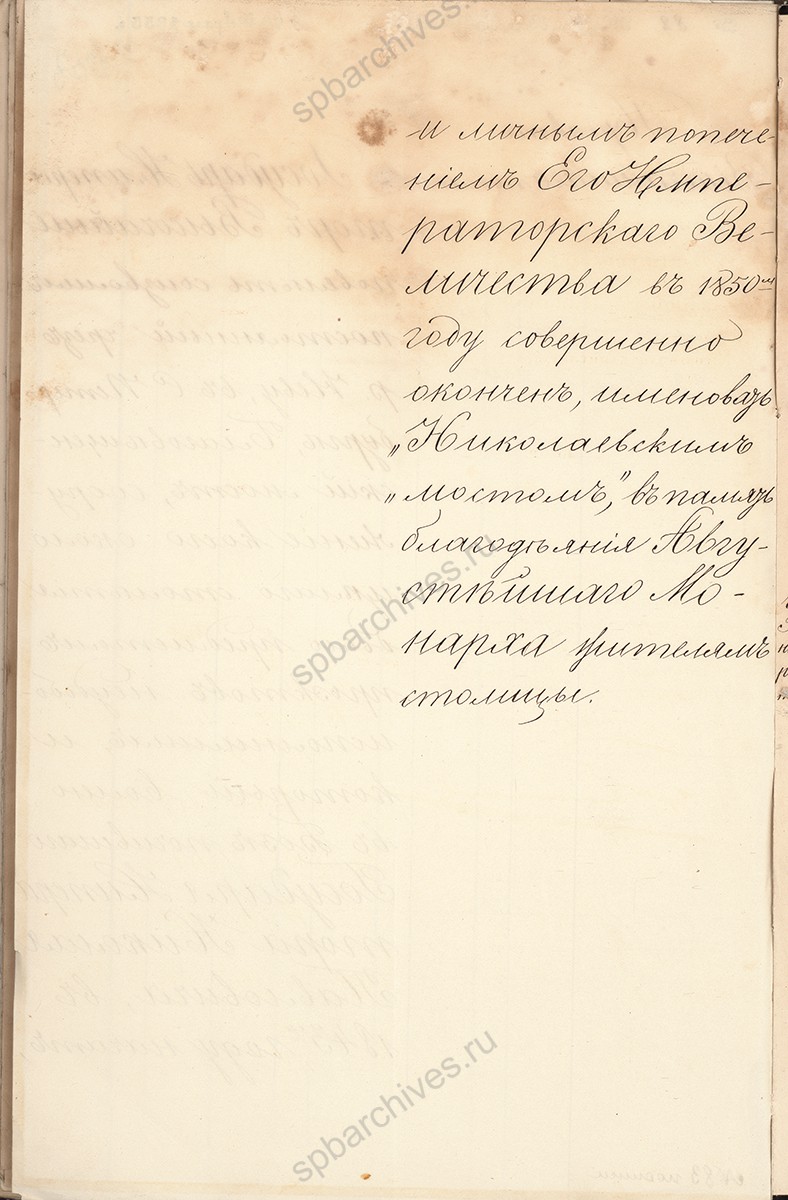 spbarchives.ru
и личнымъ попече-
ніемъ Его Импе-
раторскаго Ве-
личества въ 1850мъ
году совершенно
оконченъ, именовать
„Николаевскимъ
„мостомъ“, въ память
благодѣянія Авгу-
стѣйшаго Мо-
нарха жителямъ
столицы.
spbarchives.ru
spbarchives.ru